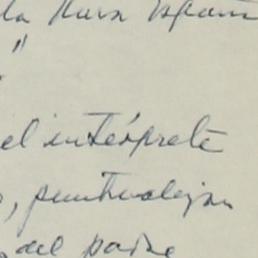 la Nueva España
"
el intérprete
, puntualizan
del padre